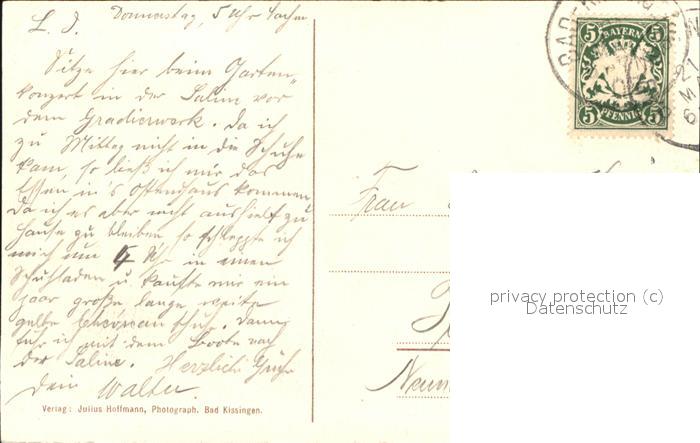 L. J. Donnerstag, 5 Uhr
Sitze hier beim Garten-
konzert in der Salin vor
dem Gradierwerk. Da ich
zu Mittag nicht in die Schuhe
kam, so ließ ich mir das
Essen in's Ostendhaus kommen.
Da ich es aber nicht aushielt zu
Hause zu bleiben so schleppte ich
mich um 4 Uhr in einen
Schuhladen u. kaufte mir ein
paar große lange weite
gelbe Schuhe. Dann
fuhr ich mit dem Boote nach
der Saline. Herzliche Grüße
Dein Walter.
Verlag: Julius Hoffmann, Photograph. Bad Kissingen.
5 BAYERN 5
5 PFENNIG 5
BAD
21
6
Frau
privacy protection (c)
Datenschutz